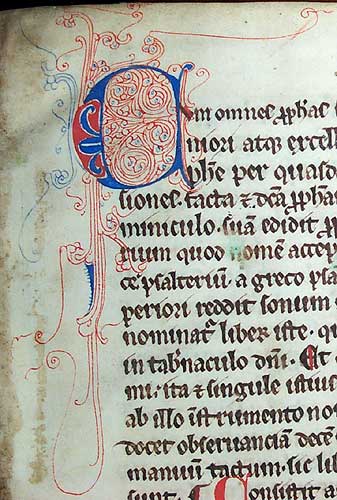 Cum omnes ꝓphas
iuori atqꝫ excell
ꝓphe per quasd
siones. facta ⁊ dc̄a ꝓphar
miniculo. suā edidit ꝓp
rium quod nomē accep
ce psalteriū a greco psa
periori reddit sonum
nominatᷣ liber iste. q
in tab̄naculo dn̄i. Et
mi. ita ⁊ singule istius
ab illo īstrumento no
docet obseruanciā decē
manuū tactum. sic lib
sunt. Consistit a